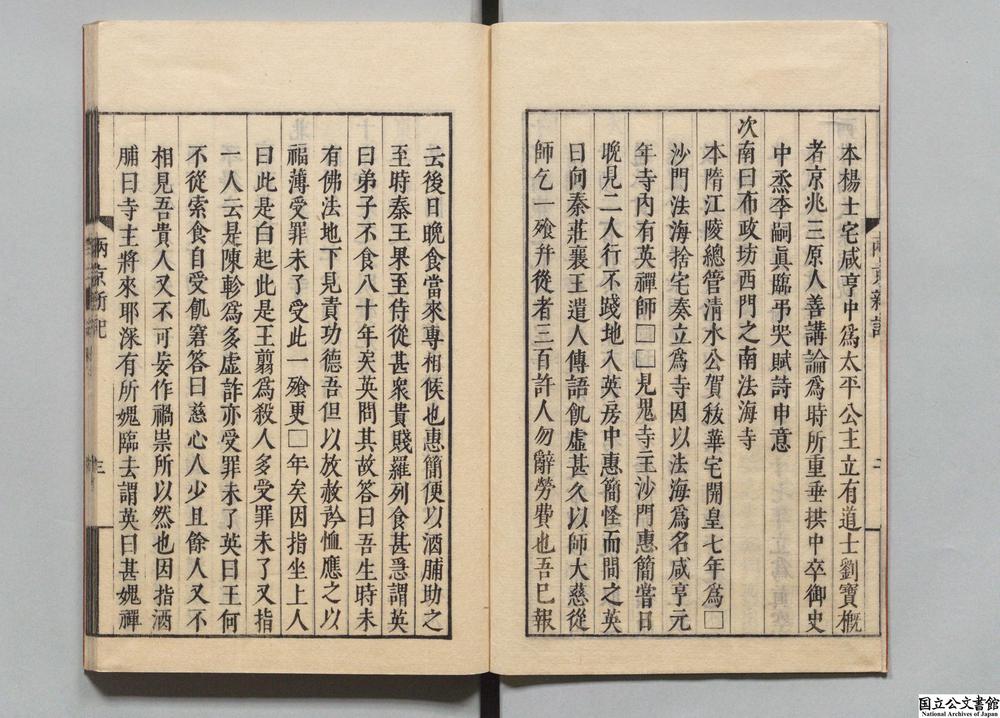 本楊士宅咸亨中為太平公主立有道士劉寶概
者京兆三原人善講論為時所重垂拱中卒御史
中烝李嗣真臨弔哭賦詩申意
次南曰布政坊西門之南法海寺
本隋江陵總管清水公賀秡華宅開皇七年為□
沙門法海捨宅奏立為寺因以法海為名咸亨元
年寺内有英禪師□□見鬼寺主沙門惠簡嘗日
晚見二人行不踐地入英房中惠簡怪而問之英
曰向秦莊襄王遣人傳語飢虛甚久以師大慈從
師乞一飱并從者三百許人勿辭勞費也吾已報
云後日晚食當來專相候也惠簡便以酒脯助之
至時秦王果至侍從甚衆貴賤羅列食甚急謂英
曰弟子不食八十年矣英問其故答曰吾生時未
有佛法地下見責功德吾但以放赦矜恤應之以
福薄受罪未了受此一飱更□年矣因指坐上人
曰此是白起此是王翦為殺人多受罪未了又指
一人云是陳軫為多虛詐亦受罪未了英曰王何
不從索食自受飢窘答曰慈心人少且餘人又不
相見吾貴人又不可妄作禍祟所以然也因指酒
脯曰寺主將來耶深有所媿臨去謂英曰甚媿禪
兩京新記
三
国立公文書館
National Archives of Japan